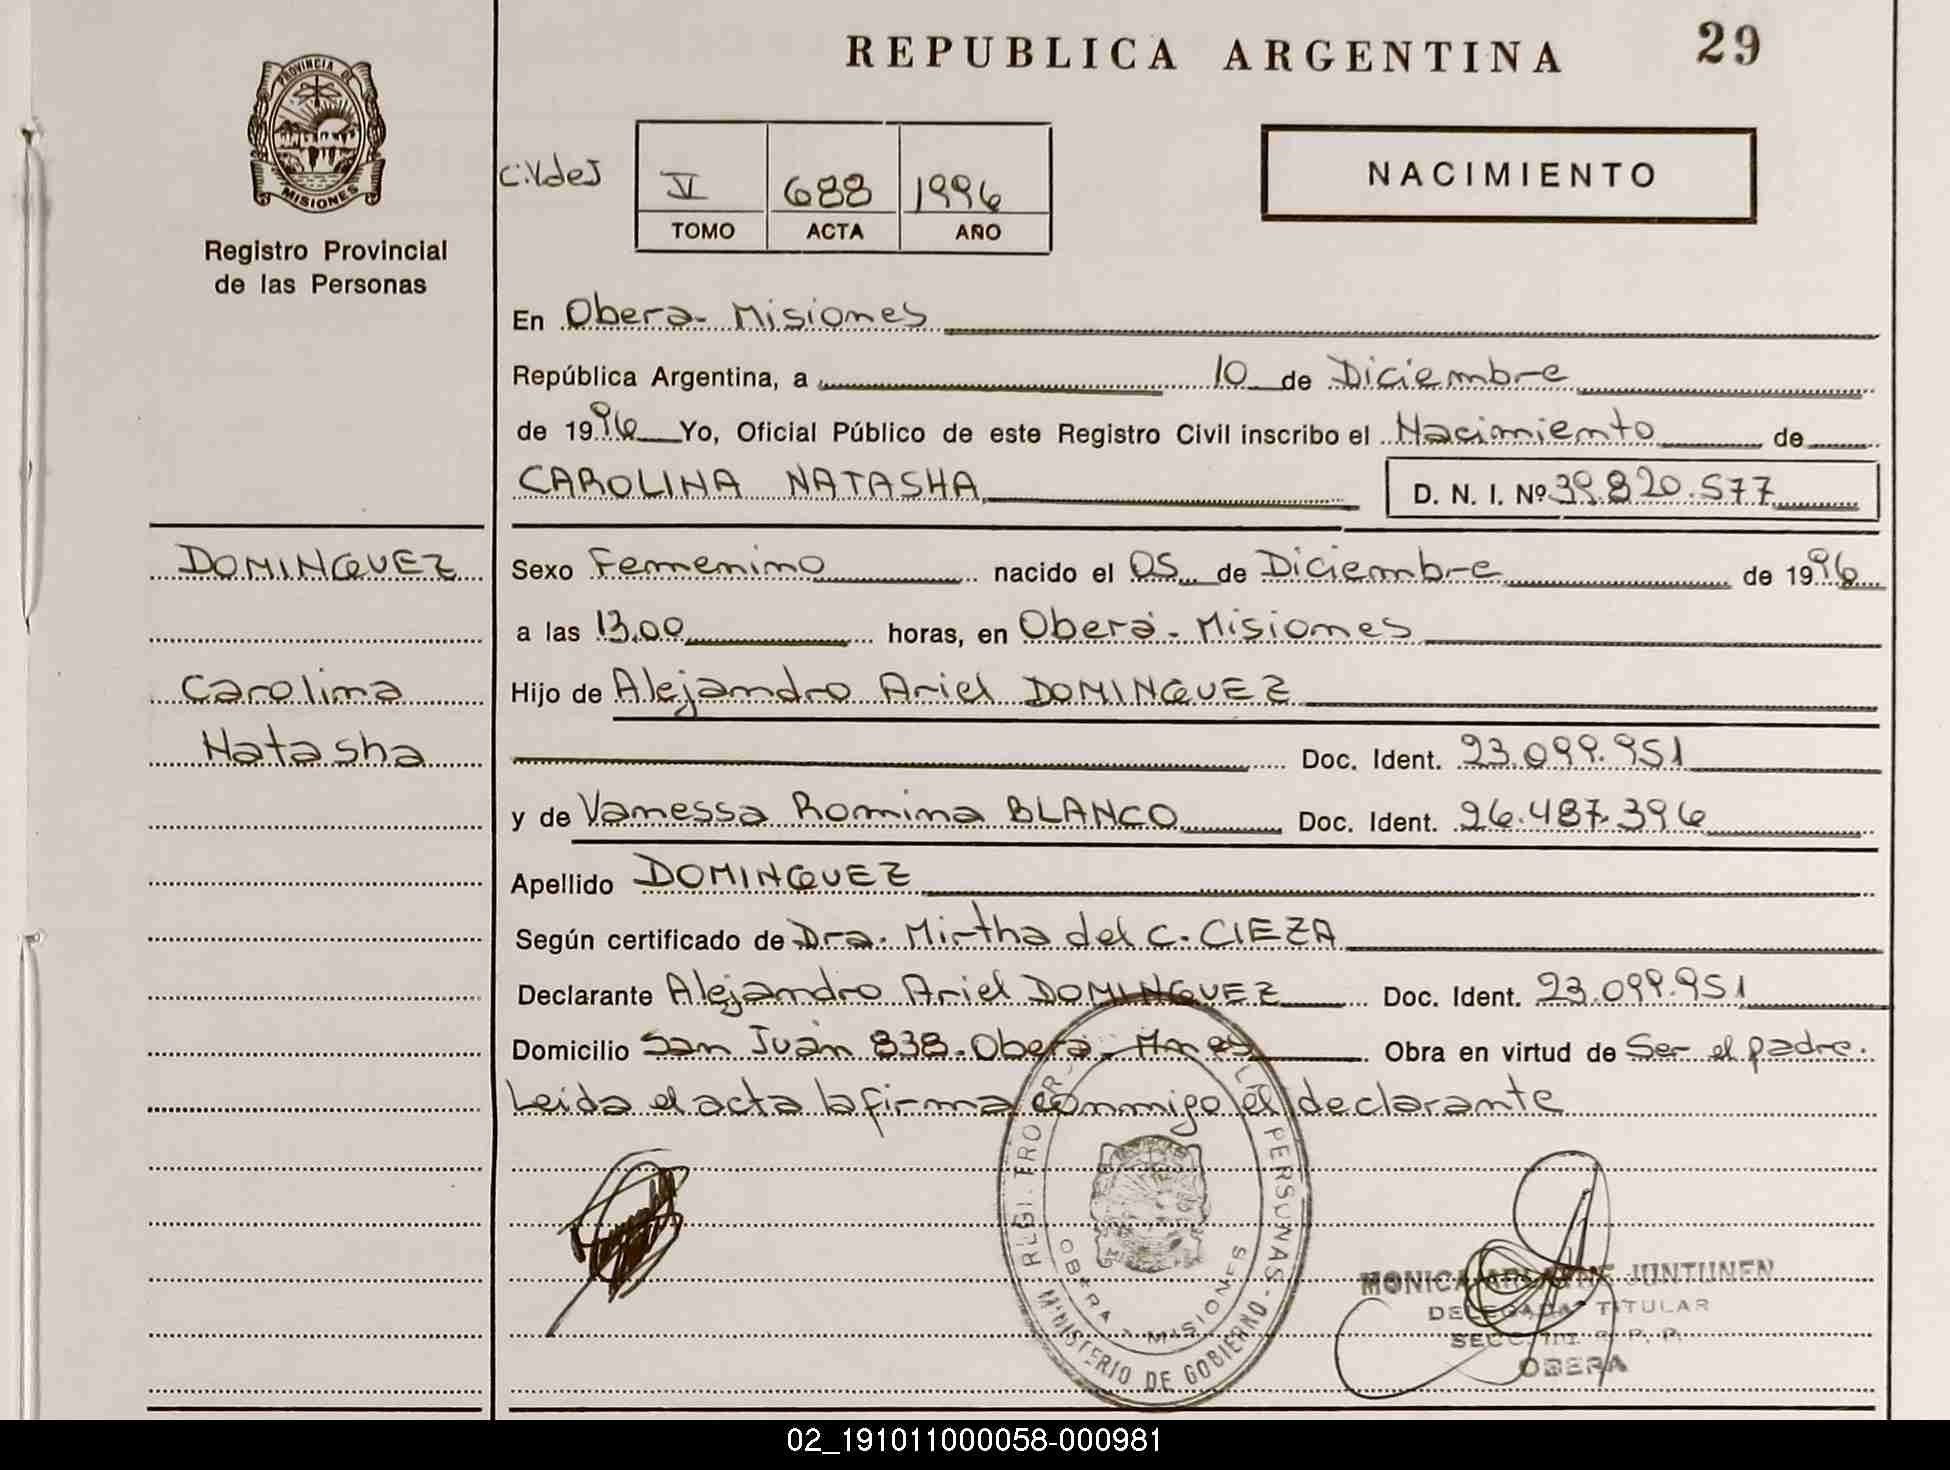 REPUBLICA ARGENTINA 29
PROVINCIA DE
MISIONES
Registro Provincial
de las Personas
C.V de J
V 688 1996
TOMO ACTA AÑO
NACIMIENTO
En Obera - Misiones
República Argentina, a 10 de Diciembre
de 1996 Yo, Oficial Público de este Registro Civil inscribo el Nacimiento de
CAROLINA NATASHA D. N. I. Nº 39.820.577
DOMINGUEZ
Carolina
Natasha
Sexo Femenino nacido el 05 de Diciembre de 1996
a las 13,00 horas, en Oberá - Misiones
Hijo de Alejandro Ariel DOMINGUEZ
Doc. Ident. 23.099.951
y de Vanessa Romina BLANCO Doc. Ident. 26.487.396
Apellido DOMINGUEZ
Según certificado de Dra. Mirtha del C. CIEZA
Declarante Alejandro Ariel DOMINGUEZ Doc. Ident. 23.099.951
Domicilio San Juan 838 - Oberá - Mnes Obra en virtud de Ser el padre.
Leida el acta la firma conmigo el declarante
PERSONAS - MINISTERIO DE GOBIERNO
OBERA - MISIONES
MONICA JUNTUNEN
DELEGADA TITULAR
OBERA
02_191011000058-000981